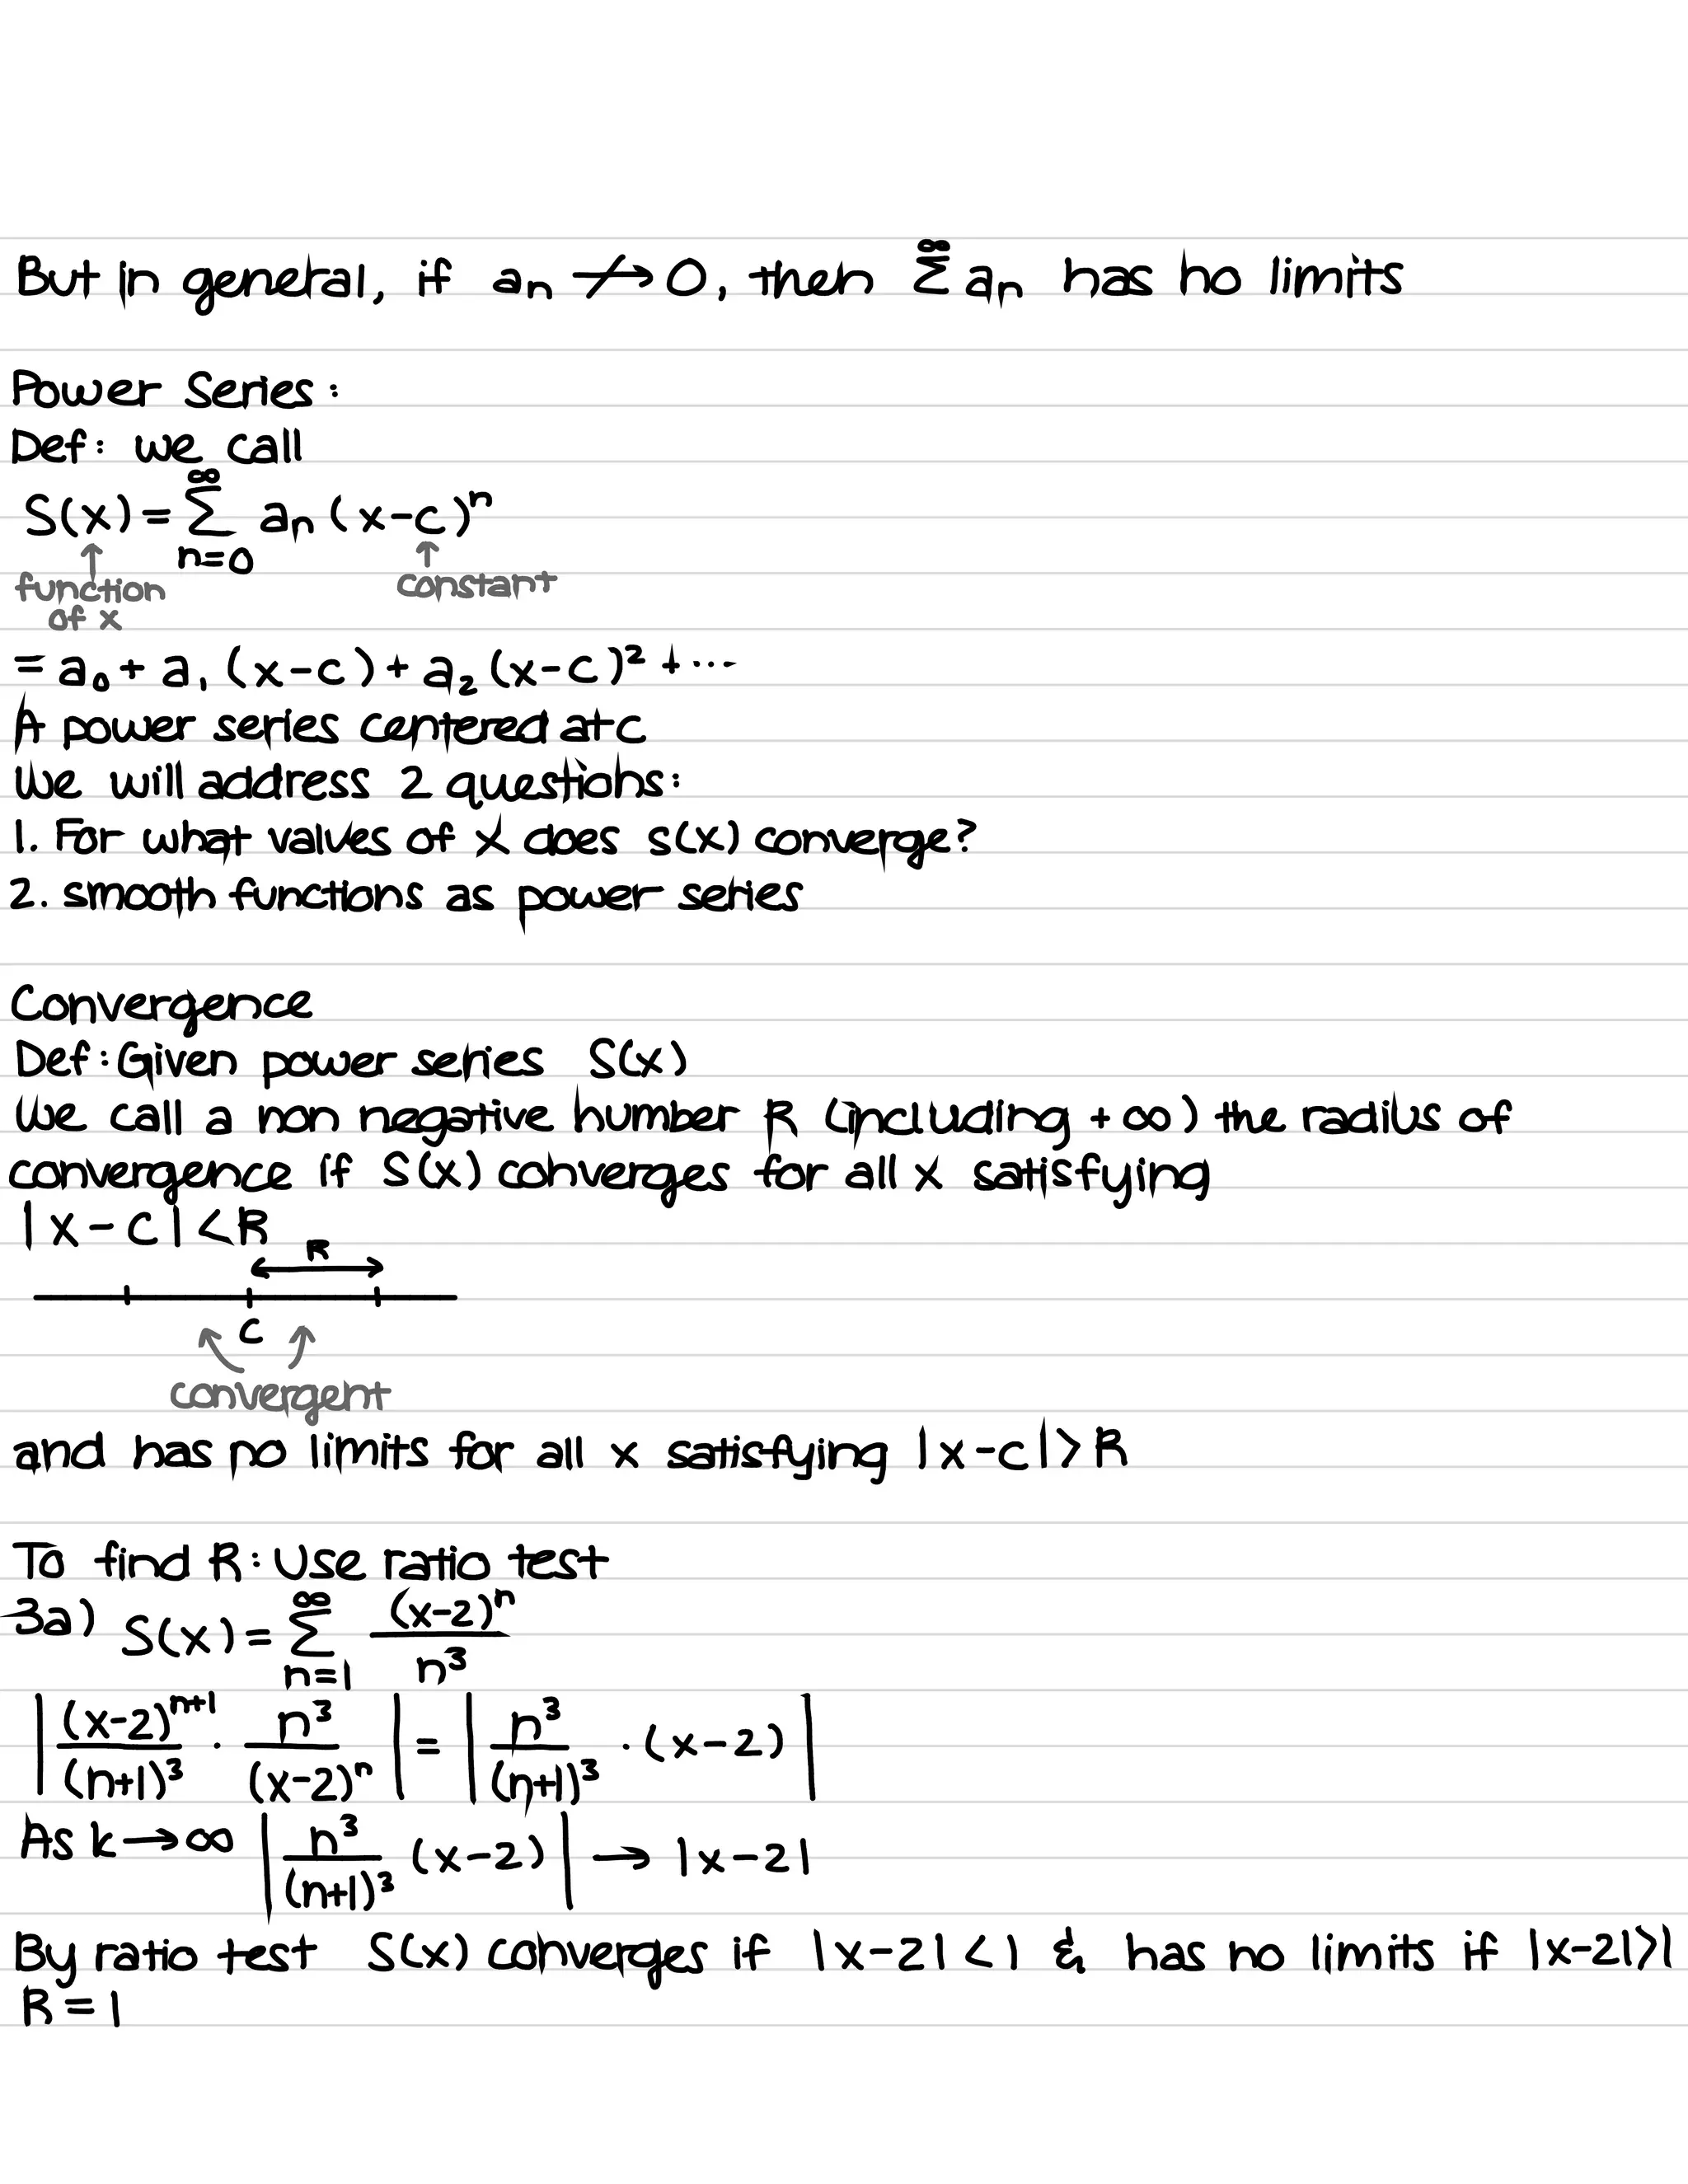 But in general, if aₙ ↛ 0, then Σ^∞ aₙ has no limits
Power Series:
Def: we call
S(x) = Σ_{n=0}^{∞} aₙ (x-c)ⁿ
↑ ↑
function constant
of x
= a₀ + a₁ (x-c) + a₂ (x-c)² + ...
A power series centered at c
We will address 2 questions:
1. For what values of x does s(x) converge?
2. smooth functions as power series
Convergence
Def: Given power series S(x)
We call a non negative number R (including +∞) the radius of
convergence if S(x) converges for all x satisfying
|x-c| < R
R
c
convergent
and has no limits for all x satisfying |x-c| > R
To find R: Use ratio test
3a) S(x) = Σ_{n=1}^{∞} (x-2)ⁿ / n³
| (x-2)ⁿ⁺¹ / (n+1)³ · n³ / (x-2)ⁿ | = | n³ / (n+1)³ · (x-2) |
As k → ∞ | n³ / (n+1)³ (x-2) | → |x-2|
By ratio test S(x) converges if |x-2| < 1 & has no limits if |x-2|>1
R = 1